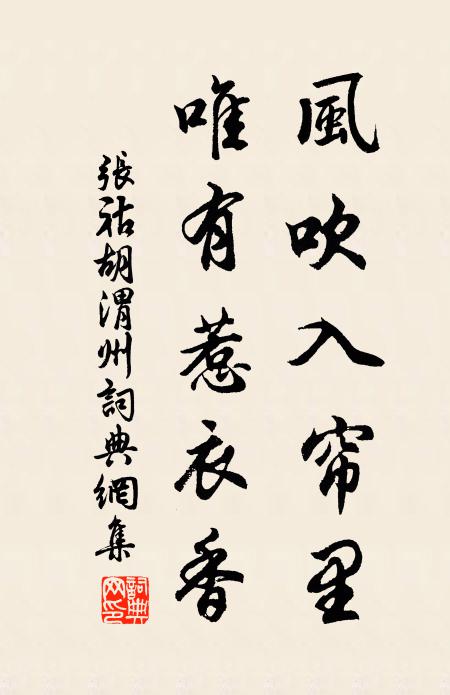 風吹入帘里
唯有惹衣香
張祜胡渭州詞典網集
詞典網印